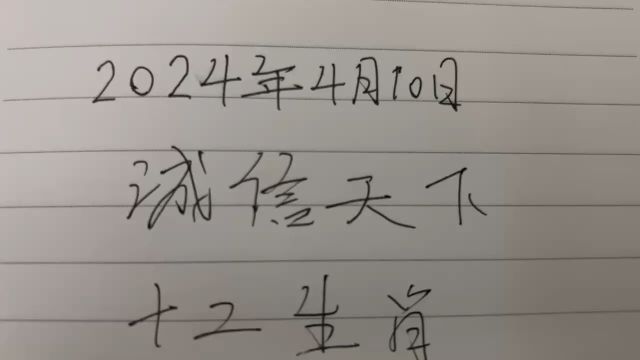 2024年4月10日
诚信天下
十二生肖